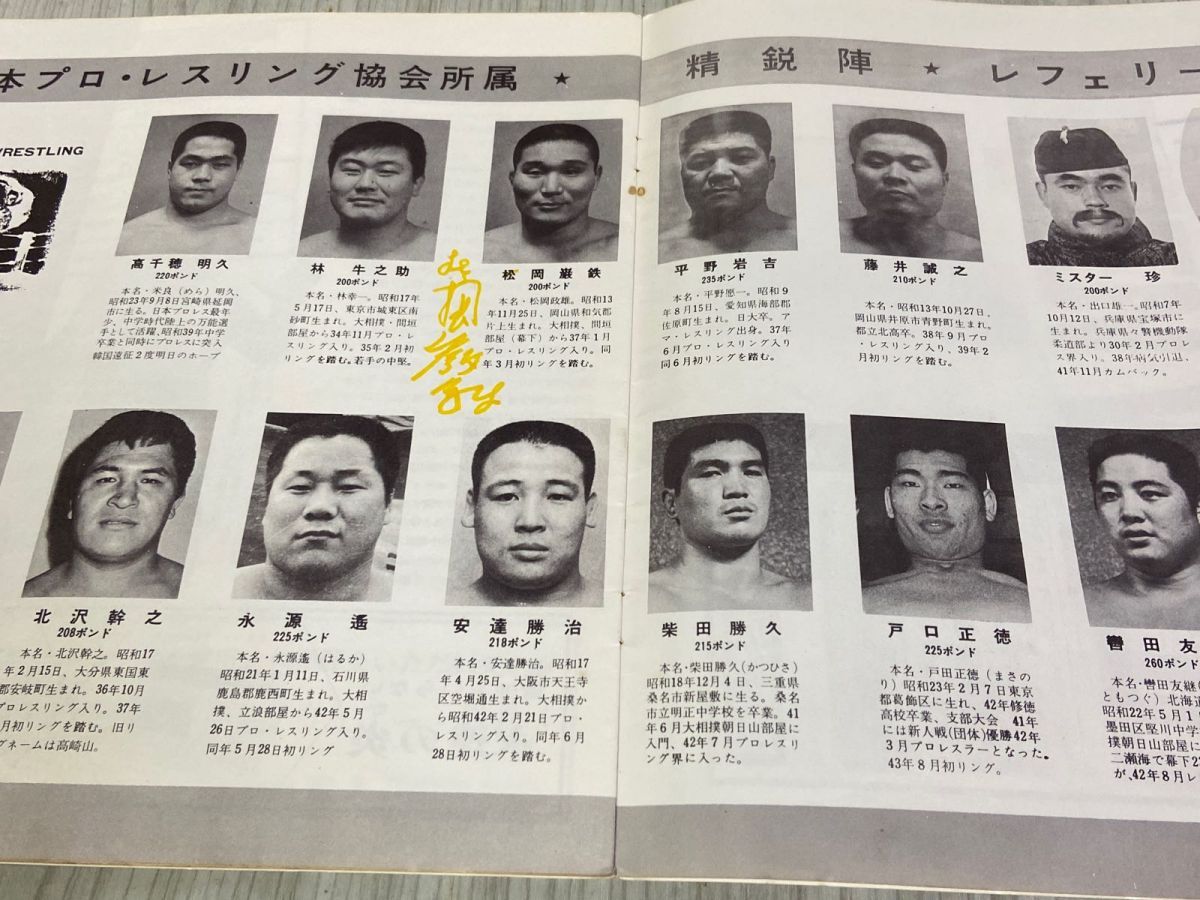 本プロ・レスリング協会所属 ★
精鋭陣 ★ レフェリー
WRESTLING
高千穂 明久
220ポンド
本名・米良(めら)明久、
昭和23年9月8日宮崎県延岡
市に生る。日本プロレス最年
少、中学時代陸上の万能選
手として活躍、昭和39年中学
卒業と同時にプロレスに突入
韓国遠征2度明日のホープ
林 牛之助
200ポンド
本名・林幸一。昭和17年
5月17日、東京市城東区南
砂町生まれ。大相撲・間垣
部屋から34年11月プロ・レ
スリング入り。35年2月初
リングを踏む。若手の中堅。
松岡巌鉄
200ポンド
本名・松岡政雄。昭和13
年11月25日、岡山県和気郡
片上生まれ。大相撲、間垣
部屋(幕下)から37年1月
プロ・レスリング入り。同
年3月初リングを踏む。
松岡巌鉄
平野岩吉
235ポンド
本名・平野愿一。昭和9
年8月15日、愛知県海部郡
佐原町生まれ。日大卒。ア
マ・レスリング出身。37年
6月プロ・レスリング入り。
同6月初リングを踏む。
藤井誠之
210ポンド
昭和13年10月27日、
岡山県井原市青野町生まれ。
都立北高卒。38年9月プロ
・レスリング入り、39年2
月初リングを踏む。
ミスター珍
200ポンド
本名・出口雄一。昭和7年
10月12日、兵庫県宝塚市に
生まれ。兵庫県々警機動隊
柔道部より30年2月プロレ
ス界入り。38年病気引退、
41年11月カムバック。
北沢幹之
208ポンド
本名・北沢幹之。昭和17
年2月15日、大分県東国東
郡安岐町生まれ。36年10月
プロレスリング入り。37年
月初リングを踏む。旧リ
グネームは高崎山。
永源遙
225ポンド
本名・永源遙(はるか)
昭和21年1月11日、石川県
鹿島郡鹿西町生まれ。大相
撲、立浪部屋から42年5月
26日プロ・レスリング入り。
同年5月28日初リング
安達勝治
218ポンド
本名・安達勝治。昭和17
年4月25日、大阪市天王寺
区空堀通生まれ。大相撲か
ら昭和42年2月21日プロ・
レスリング入り。同年6月
28日初リングを踏む。
柴田勝久
215ポンド
本名・柴田勝久(かつひさ)
昭和18年12月4日、三重県
桑名市新屋敷に生る。桑名
市立明正中学校を卒業。41
年6月大相撲朝日山部屋に
入門、42年7月プロレスリ
ング界に入った。
戸口正徳
225ポンド
本名・戸田正徳(まさの
り)昭和23年2月7日東京
都葛飾区に生れ、42年修徳
高校卒業、支部大会 41年
には新人戦(団体)優勝42年
3月プロレスラーとなった。
43年8月初リング。
轡田友
260ポンド
本名・轡田友継(
ともつぐ)北海道
昭和22年5月1
墨田区竪川中学
撲朝日山部屋
二瀬海で幕下23
が、42年8月レ